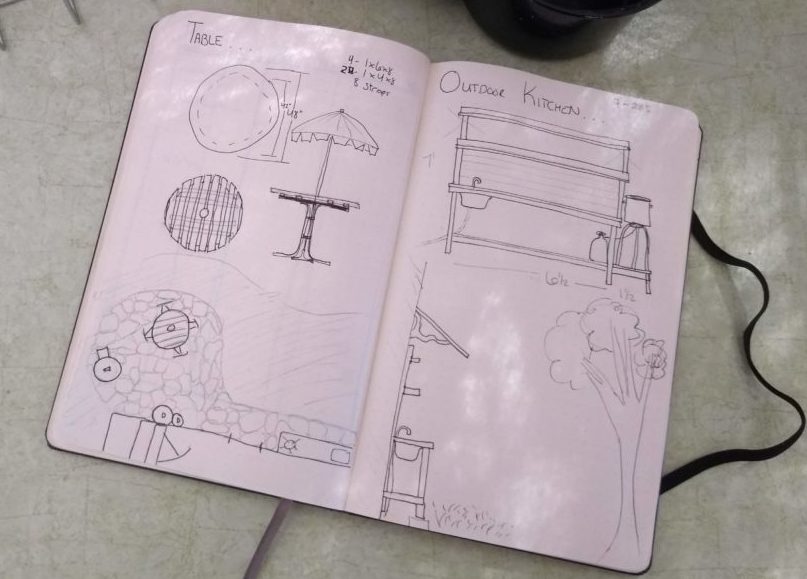 TABLE...
4- 1x6x8
1x4x8
8 straps
48"
OUTDOOR KITCHEN...
7'
6 1/2
1 1/2